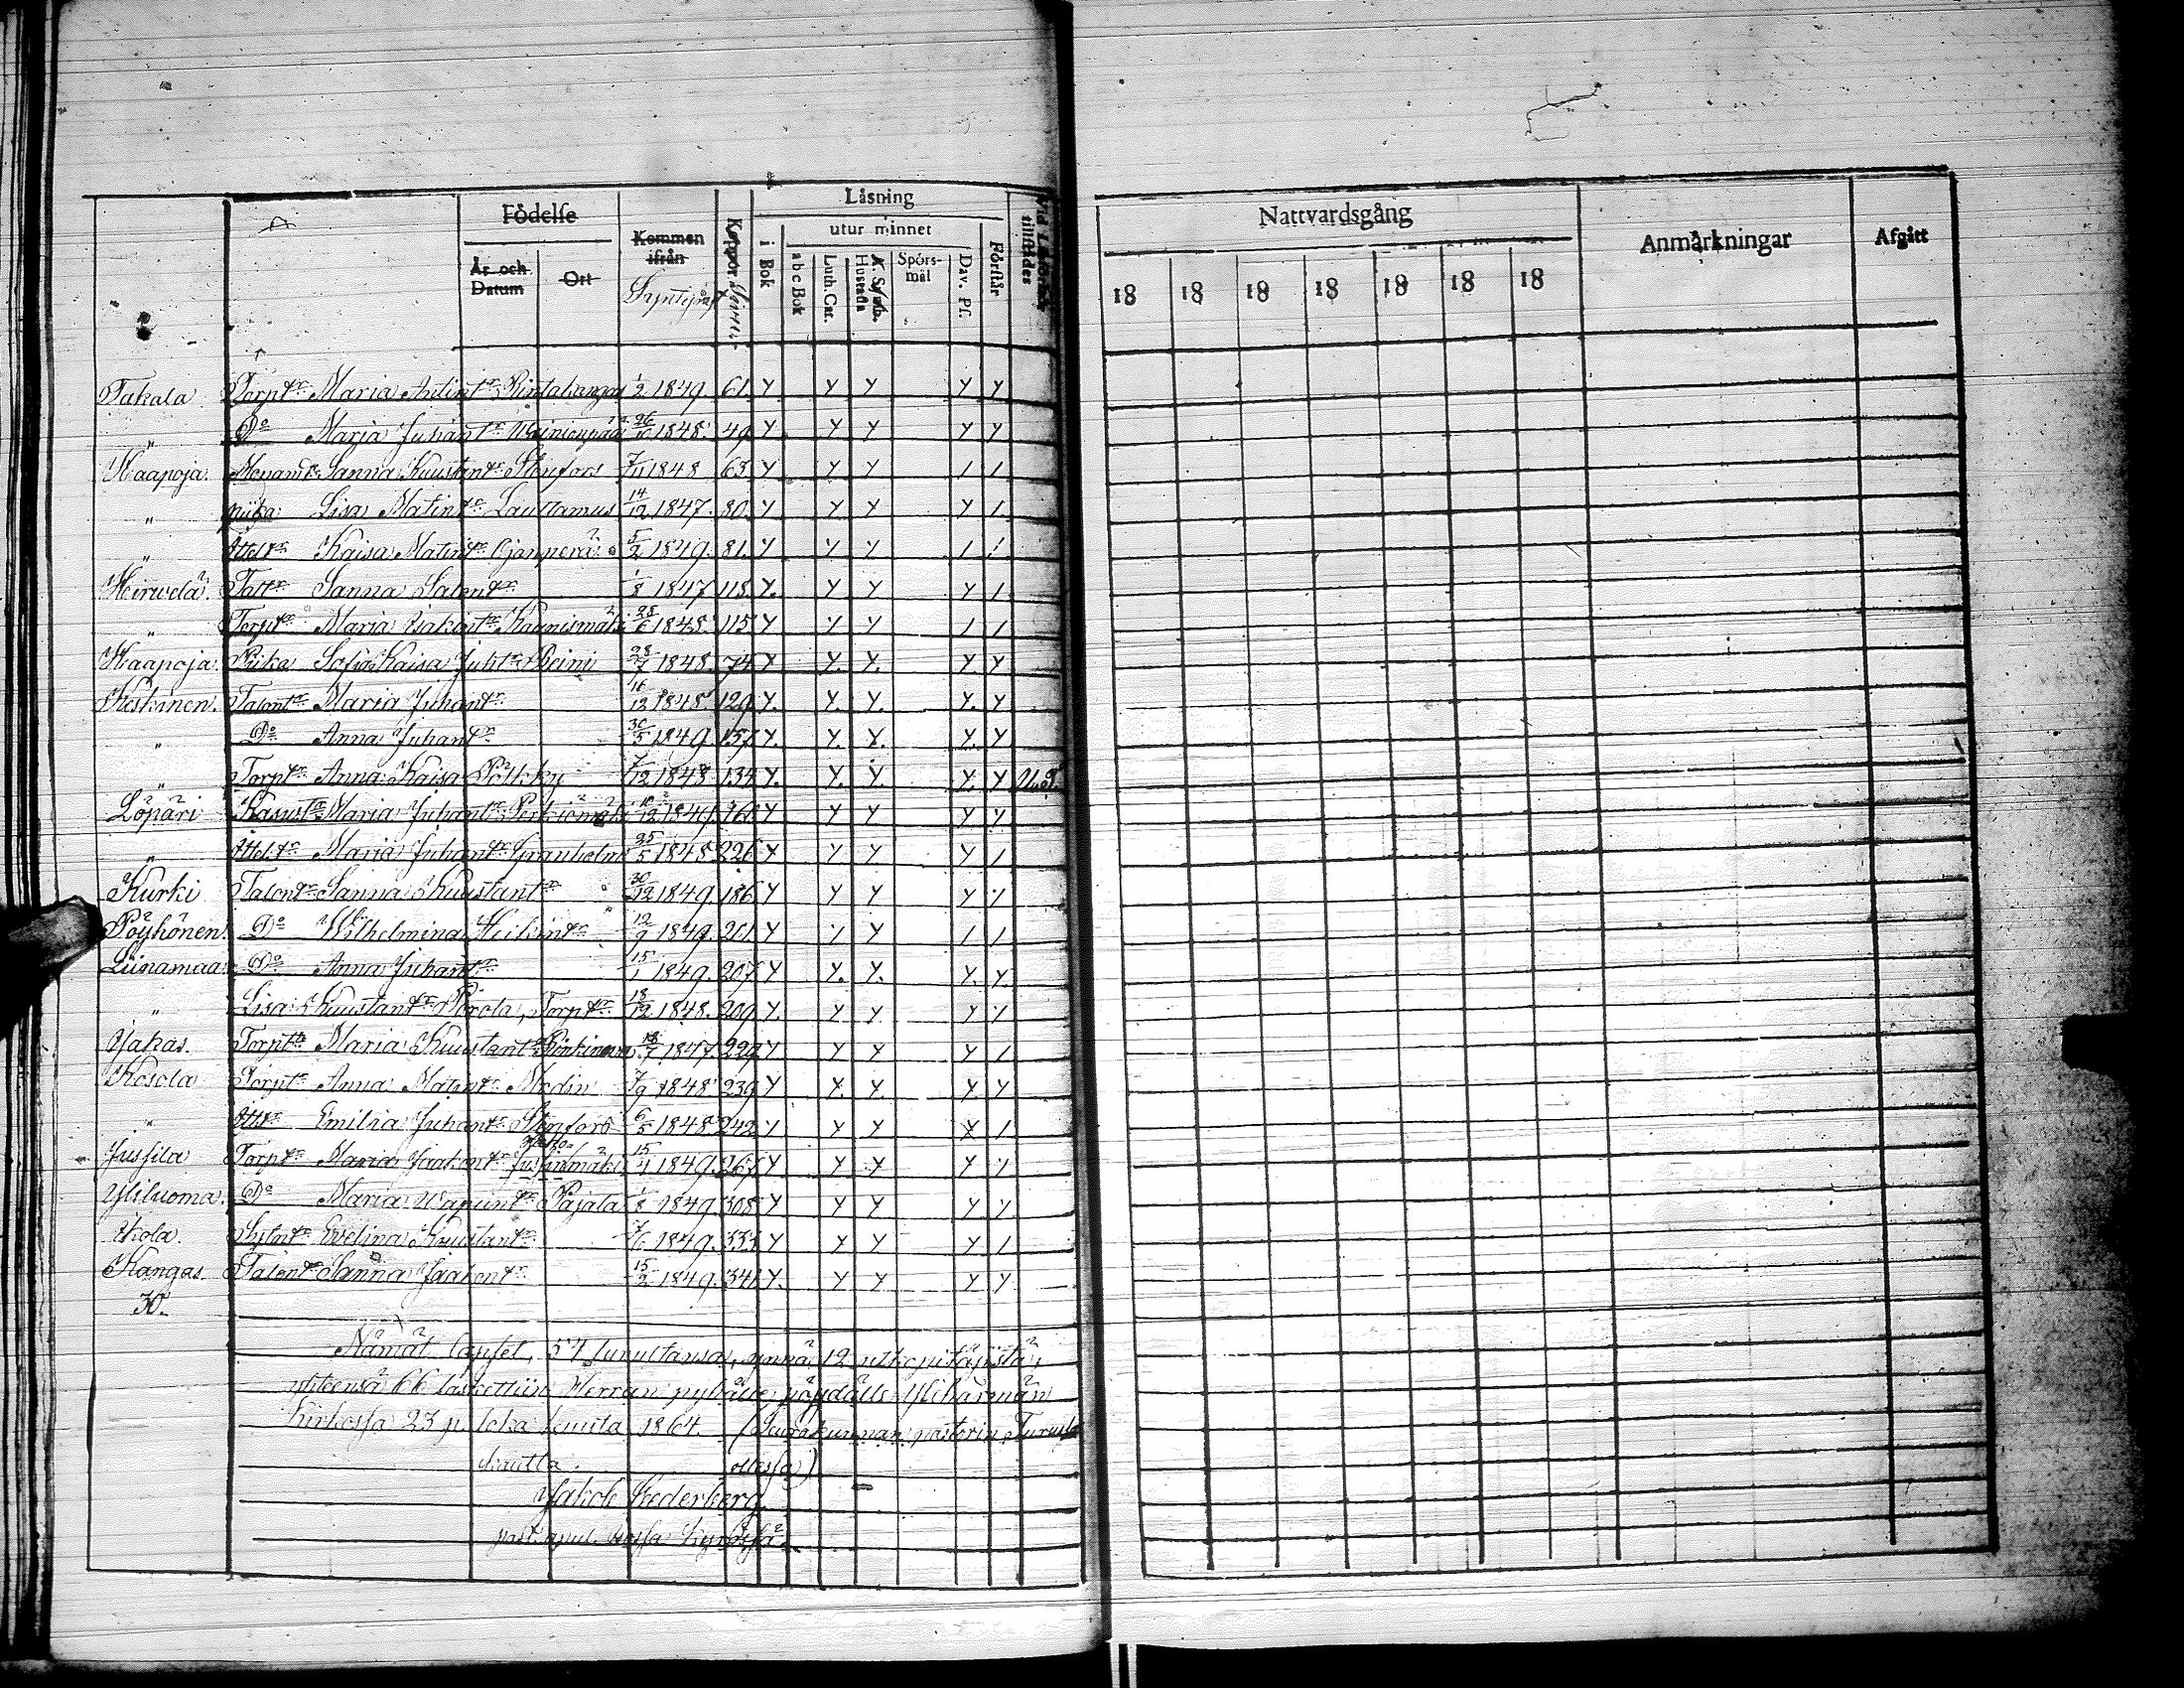 Födelse
År och Datum
Ort
Kommen ifrån
Syntyny
Koppor
Läsning
i Bok
utur minnet
abc Bok
Luth. Cat.
A. Symb. Hustafla
Spörsmål
Dav. Ps.
Förstår
tillstädes
Nattvardsgång
18 18 18 18 18 18 18
Anmärkningar
Afgått
Takala Torptr Maria Antintr Rintakangas 1/2 1849. 61. Y Y Y Y Y
" Do Maria Juhantr Wainionpää 26/10 1848. 49 Y Y Y Y Y
Haapoja. Sanna Kuustantr Stenfors 7/11 1848 63. Y Y Y / /
" piika Lisa Matintr Lauttamus 14/12 1847. 80. Y Y Y Y /
" Itteltr Kaisa Matintr Ojanperä 5/2 1849. 81. Y Y Y / /
Heirwelä. Taltr Sanna Salentr 1/8 1847 118. Y. Y Y Y /
" Torptr Maria Jaakontr Kaunismäki 28/6 1848. 115. Y Y Y / /
Haapoja Piika Sofia Kaisa Juhtr Reini 28/7 1848 74 Y Y. Y. Y. Y
Keskinen. Talontr Maria Juhantr 16/12 1848 129 Y. Y. Y. Y. Y
" Do Anna Juhantr 30/5 1849 157 Y. Y. Y. Y. Y
" Torptr Anna Kaisa Pölkky 7/12 1848 134 Y. Y. Y. Y. Y U.T.
Löpäri Maria Juhantr Perkiömäki 10/12 1849 261 Y Y Y Y Y
" Itteltr Maria Juhantr Granholm 25/5 1848 226 Y Y Y Y /
Kurki Talontr Sanna Kuustantr 30/12 1849. 186 Y Y Y Y Y
Pöyhönen. Do Wilhelmina Heikintr 12/9 1849. 201. Y Y Y / /
Liinamaa Do Anna Juhantr 15/1 1849. 207 Y Y. Y. Y. Y.
" Lisa Kuustantr Porola, Torptr 18/12 1848. 209 Y. Y Y Y Y
Jakas. Torptr Maria Kuustantr 18/7 1847. 229 Y Y Y Y /
Kosola Torptr Anna Matintr Modin 7/9 1848 239 Y Y. Y. Y Y
" Ittr Emilia Juhantr Stenfors 6/5 1848 242 Y Y Y Y /
Jusfila Torptr Maria Jaakontr Jusfinmäki 15/1 1849. 267 Y Y Y Y Y
Yliluoma. Do Maria Wapuntr Pajala 1/8 1849 308 Y Y Y Y Y
Ikola. Evelina Kuustantr 7/6 1849. 333 Y Y Y Y /
Kangas. Talontr Sanna Jaakontr 15/2 1849. 341 Y. Y Y Y Y
30.
Nämät lapset, 54 ynnä 12 pitäjistä,
yhteensä 66 laskettiin Herran pyhälle pöydälle Ylihärmän
kirkossa 23 p. loka kuuta 1864. (Seurakunnan pastorin
kautta. ollessa)
Jakob Kederberg
past. apul. Kyrössä.